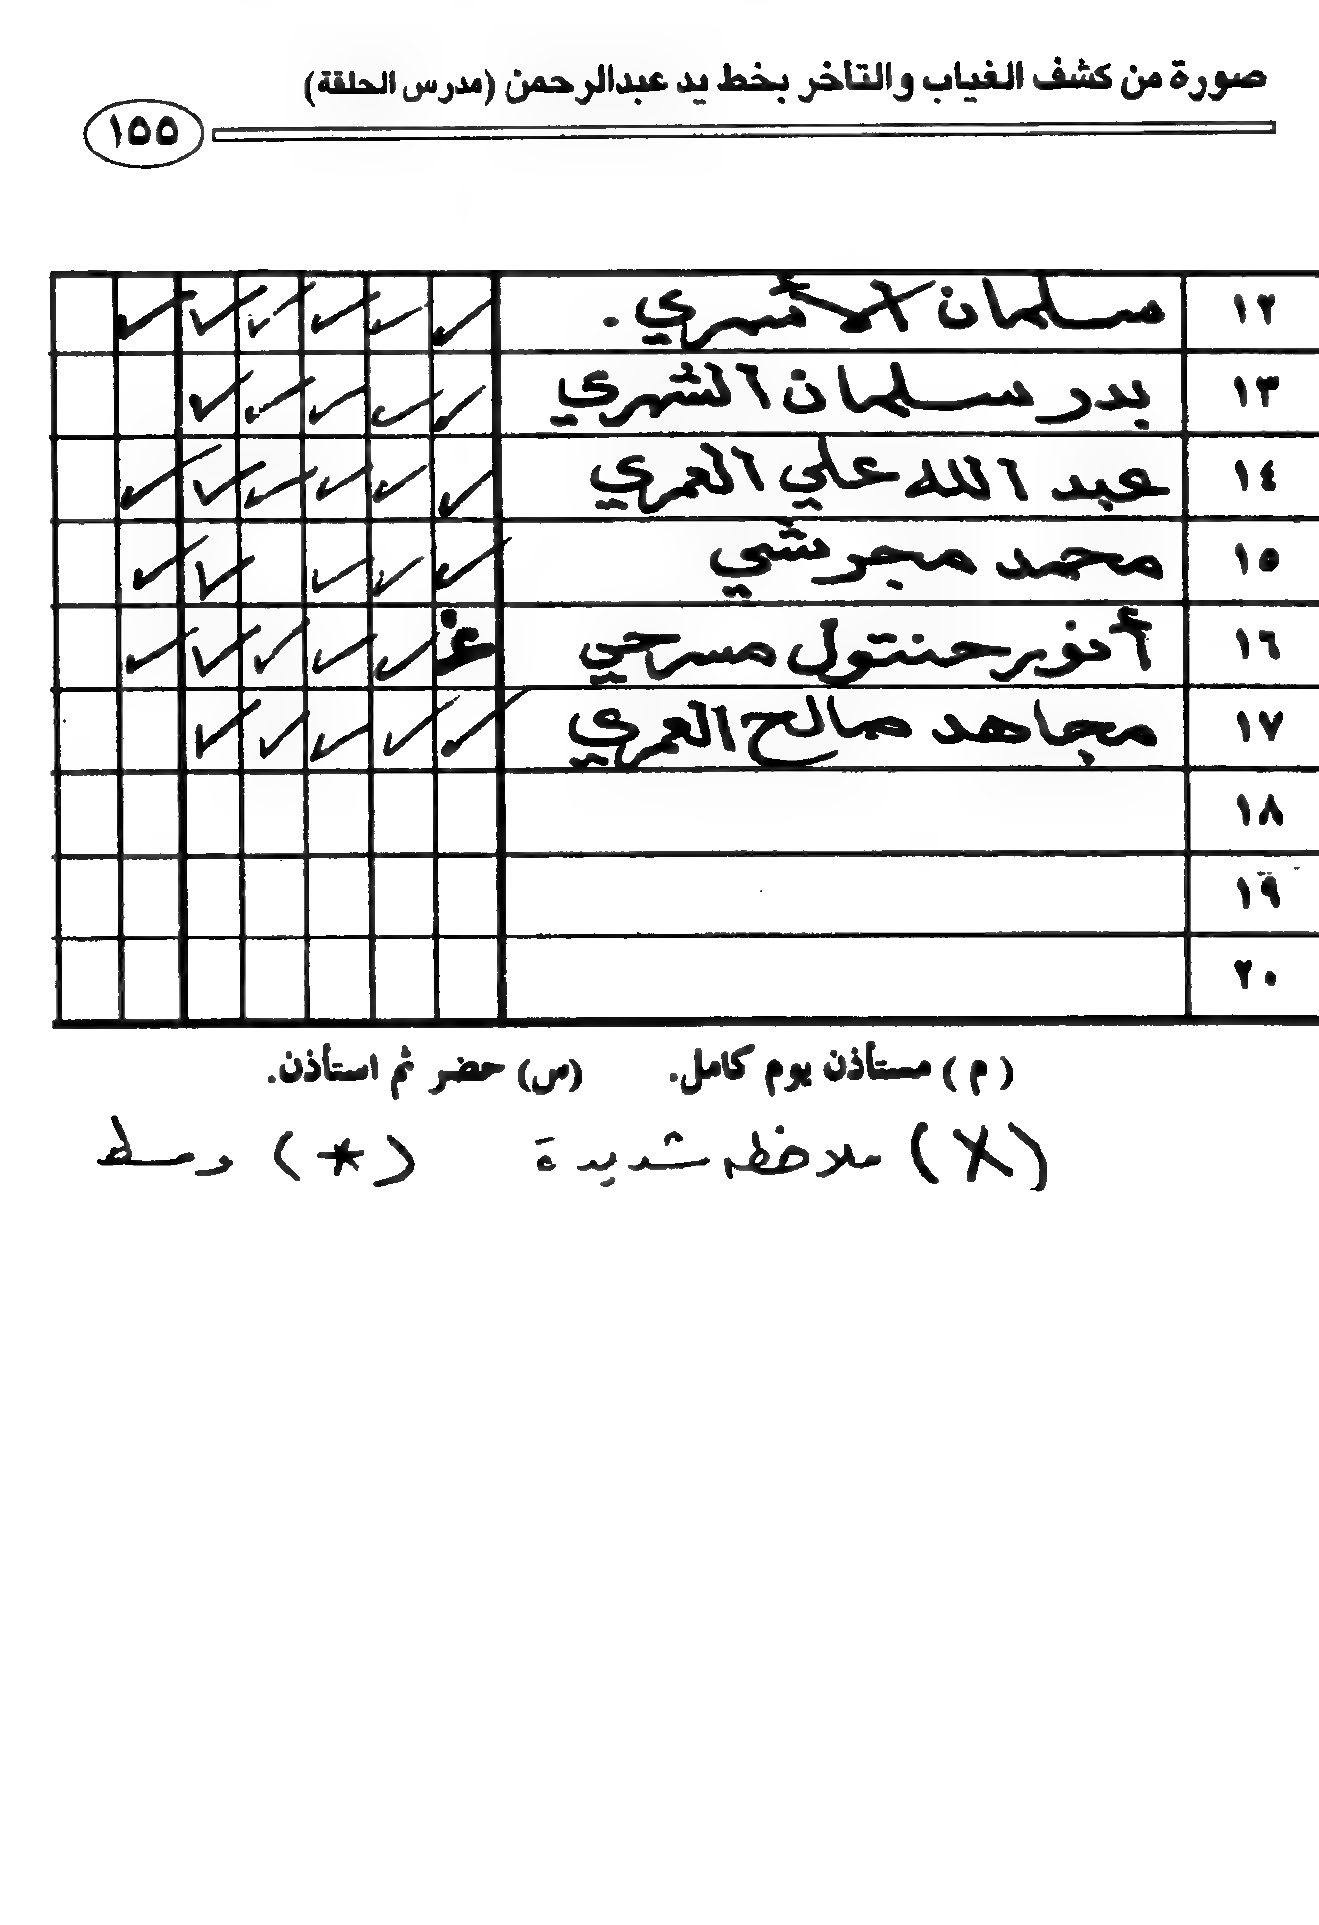 صورة من كشف الغياب والتأخر بخط يد عبدالرحمن (مدرس الحلقة)
١٥٥
١٢ سلمان الأسمري . ✓ ✓ ✓ ✓ ✓ ✓
١٣ بدر سلمان الشهري ✓ ✓ ✓ ✓ ✓
١٤ عبد الله علي العمري ✓ ✓ ✓ ✓ ✓ ✓
١٥ محمد مجرشي ✓ ✓ ✓ ✓ ✓
١٦ أنور حنتول مسرحي غ ✓ ✓ ✓ ✓ ✓
١٧ مجاهد صالح العمري ✓ ✓ ✓ ✓ ✓
١٨
١٩
٢٠
( م ) مستأذن يوم كامل. (س) حضر ثم استأذن.
(X) ملاحظه شديدة (*) وسط